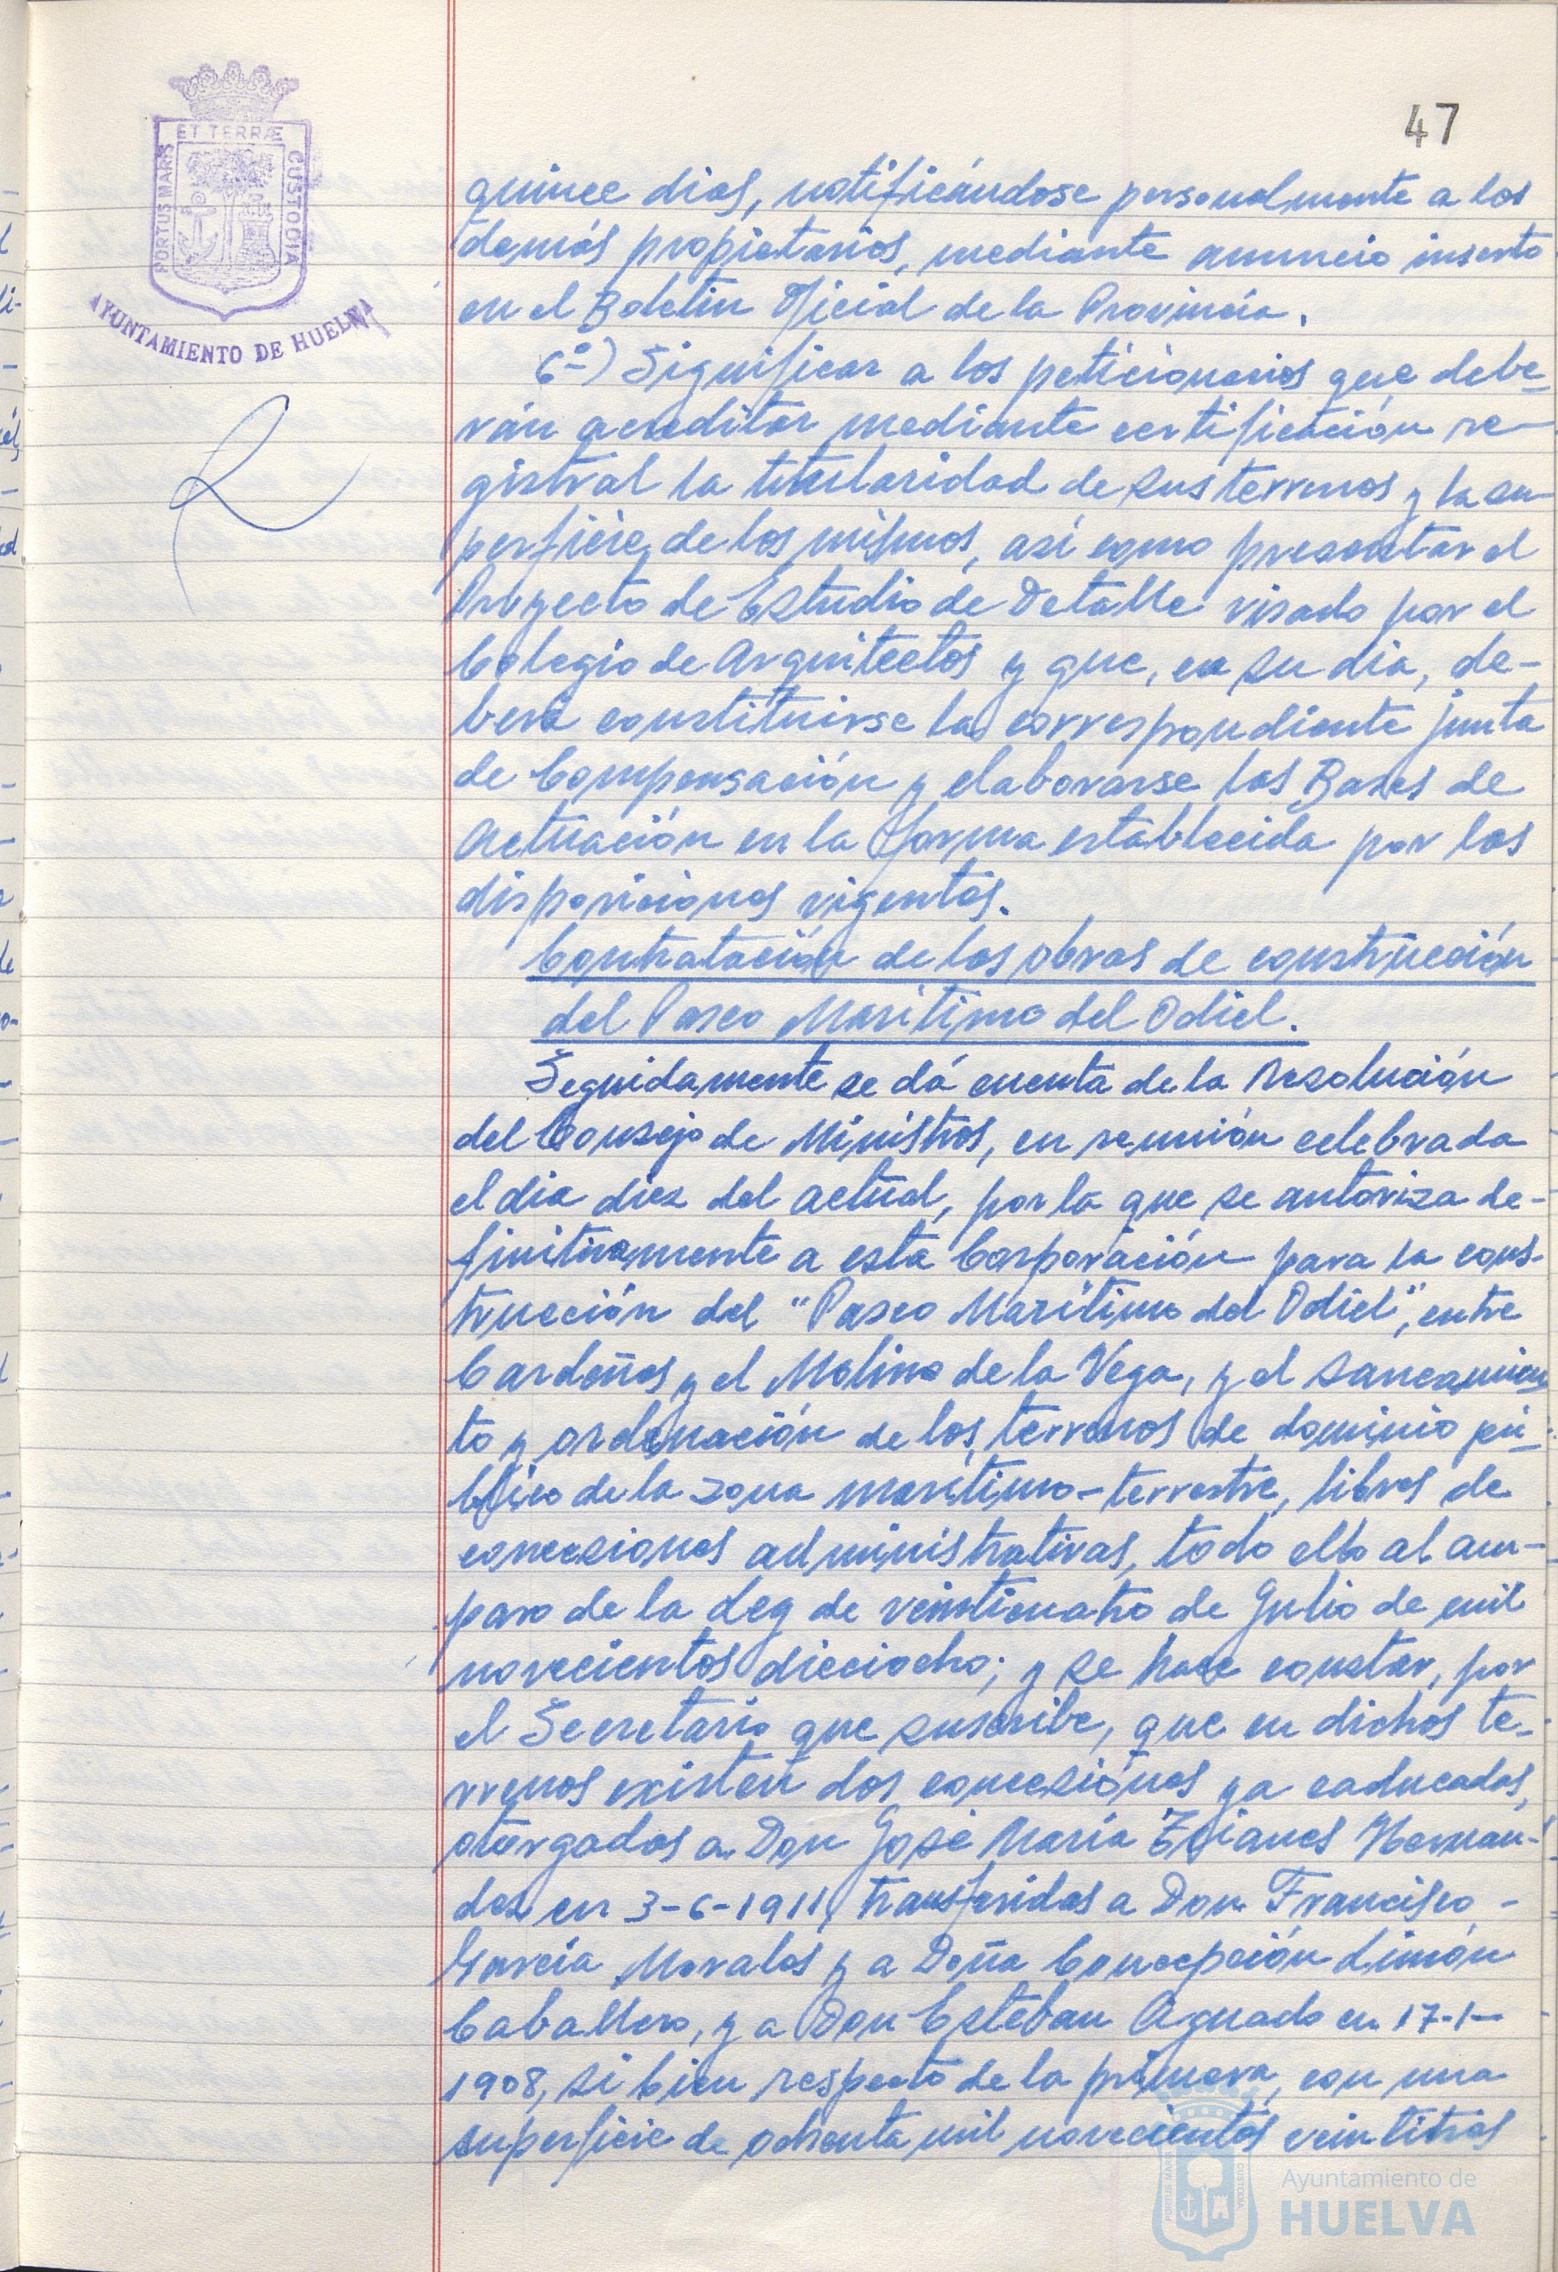 47
ET TERRÆ
PORTUS MARIS
CUSTODIA
AYUNTAMIENTO DE HUELVA
quince dias, notificándose personalmente a los
demás propietarios, mediante anuncio inserto
en el Boletin Oficial de la Provincia.
6º) Significar a los peticionarios que debe-
rán acreditar mediante certificación re-
gistral la titularidad de sus terrenos y la su-
perficie de los mismos, así como presentar el
Proyecto de Estudio de Detalle visado por el
Colegio de Arquitectos y que, en su dia, de-
berá constituirse la correspondiente Junta
de Compensación y elaborarse las Bases de
Actuación en la forma establecida por las
disposiciones vigentes.
Contratación de las obras de construcción
del Paseo Marítimo del Odiel.
Seguidamente se dá cuenta de la resolución
del Consejo de Ministros, en reunión celebrada
el dia diez del actual, por la que se autoriza de-
finitivamente a esta Corporación para la cons-
trucción del "Paseo Marítimo del Odiel", entre
Cardeñas y el Molino de la Vega, y el saneamien
to y ordenación de los terrenos de dominio pú-
blico de la zona marítimo-terrestre, libres de
concesiones administrativas, todo ello al am-
paro de la Ley de veinticuatro de Julio de mil
novecientos dieciocho; y se hace constar, por
el Secretario que suscribe, que en dichos te-
rrenos existen dos concesiones ya caducadas,
otorgadas a Don José María Zeianes Hernan-
dez en 3-6-1911, transferidas a Don Francisco
García Morales y a Doña Concepción Limón
Caballero, y a Don Esteban Aguado en 17-1-
1908, si bien respecto de la primera, con una
superficie de ochenta mil novecientos veintitres
Ayuntamiento de
HUELVA